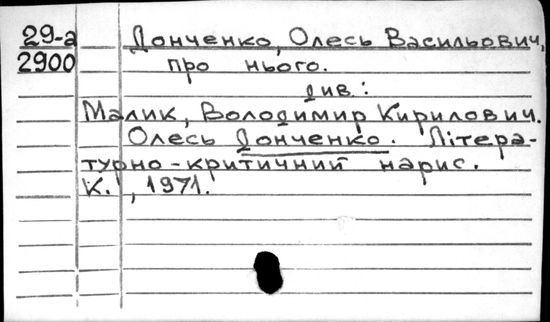 29-а Донченко, Олесь Васильович,
2900 про нього.
див.:
Малик, Володимир Кирилович.
Олесь Донченко. Літера-
турно-критичний нарис.
К., 1971.